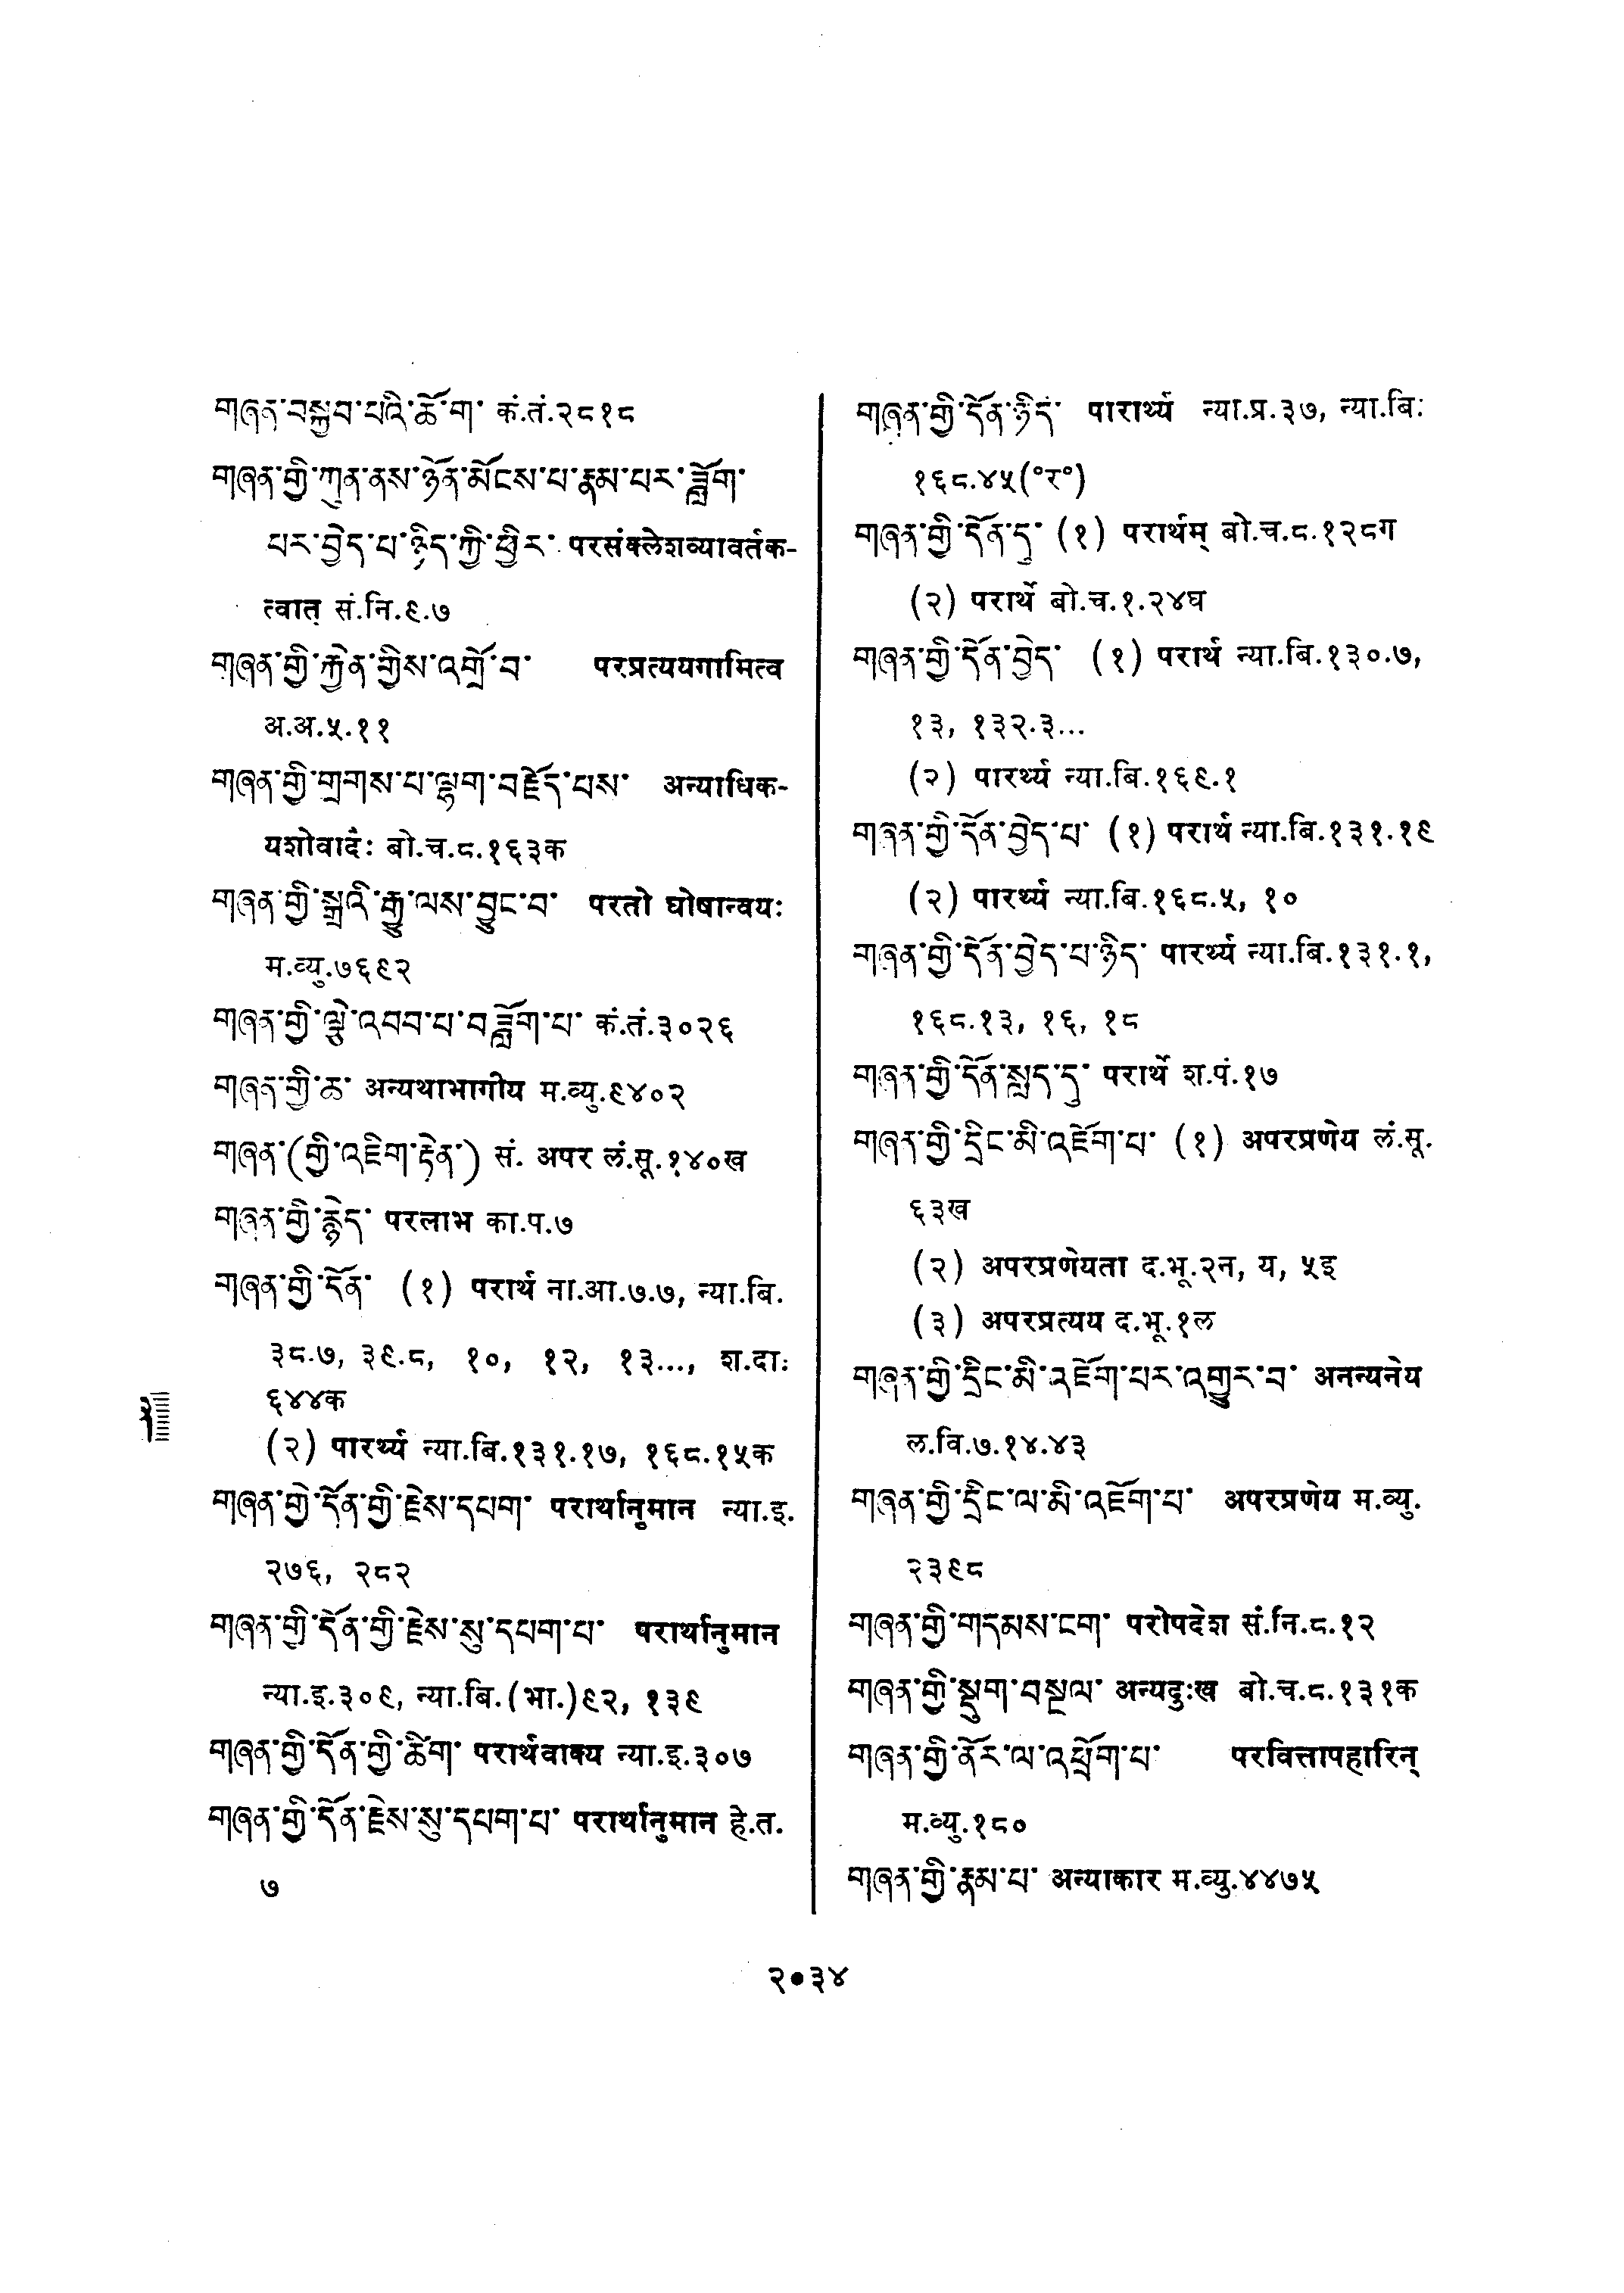 གཞན་བསྐྱབ་པའི་ཆོ་ག་ कं.तं.२८१८
གཞན་གྱི་ཀུན་ནས་ཉོན་མོངས་པ་རྣམ་པར་ཟློག་
པར་བྱེད་པ་ཉིད་ཀྱི་ཕྱིར་ परसंक्लेशव्यावर्तक-
त्वात् सं.नि.९.७
གཞན་གྱི་རྐྱེན་གྱིས་འགྲོ་བ་ परप्रत्ययगामित्व
अ.अ.५.११
གཞན་གྱི་གྲགས་པ་ལྷག་བརྗོད་པས་ अन्याधिक-
यशोवादैः बो.च.८.१६३क
གཞན་གྱི་སྒྲའི་རྒྱུ་ལས་བྱུང་བ་ परतो घोषान्वयः
म.व्यु.७६९२
གཞན་གྱི་ལྕེ་འབབ་པ་བཟློག་པ་ कं.तं.३०२६
གཞན་གྱི་ཆ་ अन्यथाभागीय म.व्यु.९४०२
གཞན་(གྱི་འཇིག་རྟེན་) सं. अपर लं.सू.१४०ख
གཞན་གྱི་རྙེད་ परलाभ का.प.७
གཞན་གྱི་དོན་ (१) परार्थ ना.आ.७.७, न्या.बि.
३८.७, ३९.८, १०, १२, १३..., श.दाः
६४४क
(२) पारर्थ्य न्या.बि.१३१.१७, १६८.१५क
གཞན་གྱེ་དོན་གྱི་རྗེས་དཔག་ परार्थानुमान न्या.इ.
२७६, २८२
གཞན་གྱི་དོན་གྱི་རྗེས་སུ་དཔག་པ་ परार्थानुमान
न्या.इ.३०९, न्या.बि.(भा.)९२, १३९
གཞན་གྱི་དོན་གྱི་ཚིག་ परार्थवाक्य न्या.इ.३०७
གཞན་གྱི་དོན་རྗེས་སུ་དཔག་པ་ परार्थानुमान हे.त.
७
གཞན་གྱི་དོན་ཉིད་ पारार्थ्य न्या.प्र.३७, न्या.बिः
१६८.४५(°र°)
གཞན་གྱི་དོན་དུ་ (१) परार्थम् बो.च.८.१२८ग
(२) परार्थे बो.च.१.२४घ
གཞན་གྱི་དོན་བྱེད་ (१) परार्थ न्या.बि.१३०.७,
१३, १३२.३...
(२) पारर्थ्य न्या.बि.१६९.१
གཞན་གྱི་དོན་བྱེད་པ་ (१) परार्थ न्या.बि.१३१.१९
(२) पारर्थ्य न्या.बि.१६८.५, १०
གཞན་གྱི་དོན་བྱེད་པ་ཉིད་ पारर्थ्य न्या.बि.१३१.१,
१६८.१३, १६, १८
གཞན་གྱི་དོན་སླད་དུ་ परार्थे श.पं.१७
གཞན་གྱི་དྲིང་མི་འཇོག་པ་ (१) अपरप्रणेय लं.सू.
६३ख
(२) अपरप्रणेयता द.भू.२न, य, ५इ
(३) अपरप्रत्यय द.भू.१ल
གཞན་གྱི་དྲིང་མི་འཇོག་པར་འགྱུར་བ་ अनन्यनेय
ल.वि.७.१४.४३
གཞན་གྱི་དྲིང་ལ་མི་འཇོག་པ་ अपरप्रणेय म.व्यु.
२३९८
གཞན་གྱི་གདམས་ངག་ परोपदेश सं.नि.८.१२
གཞན་གྱི་སྡུག་བསྔལ་ अन्यदुःख बो.च.८.१३१क
གཞན་གྱི་ནོར་ལ་འཕྲོག་པ་ परवित्तापहारिन्
म.व्यु.१८०
གཞན་གྱི་རྣམ་པ་ अन्याकार म.व्यु.४४७५
२•३४